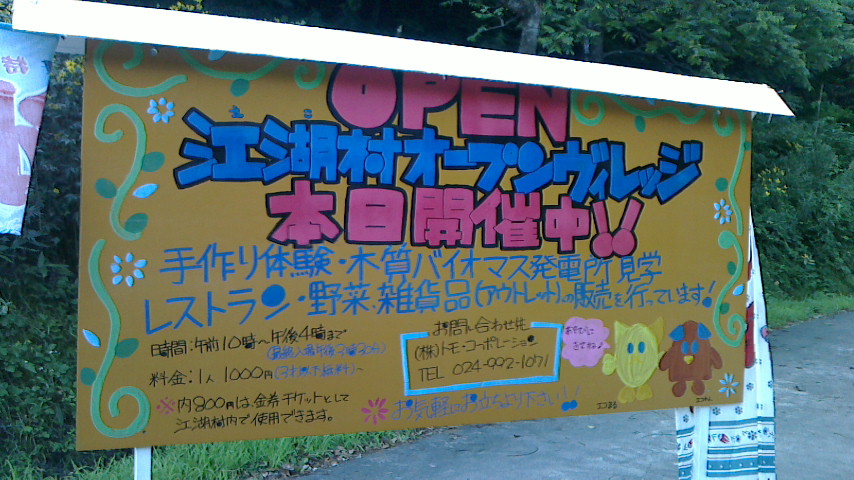 OPEN
えこ
江湖村オープンヴィレッジ
本日開催中!!
手作り体験・木質バイオマス発電所見学
レストラン・野菜、雑貨品(アウトレット)の販売を行っています!
時間:午前10時〜午後4時まで
(最終入場午後3時30分)
料金:1人 1000円(3才以下無料)
※内800円は金券チケットとして
江湖村内で使用できます。
お問い合わせ先
(株)トモ・コーポレーション
TEL 024-992-1071
お気軽にお立ちより下さい!!
あそびに
きてね♪
エコまる